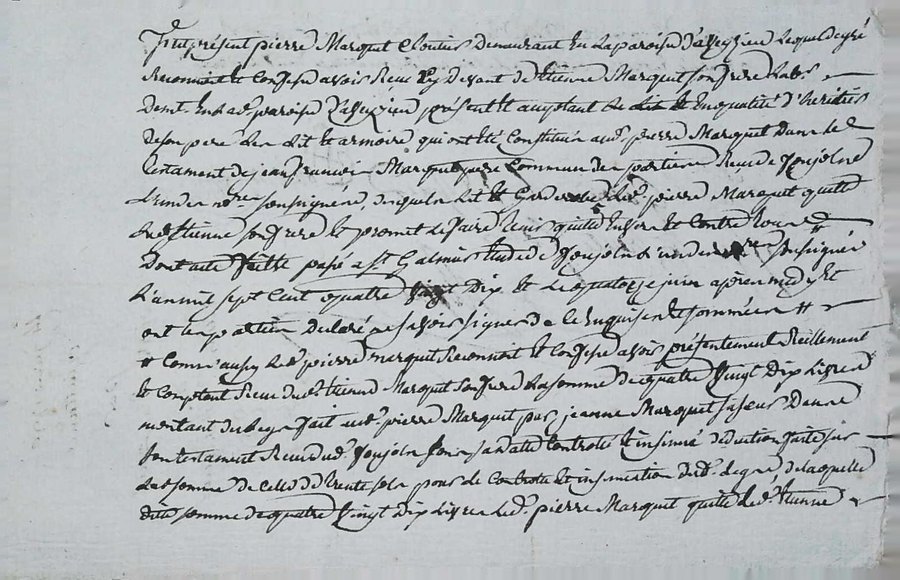 fut présent pierre Marquet Cloutier demeurant en la paroisse d'aveyzieu lequel de gré
reconnoit et confesse avoir reçu cy devant de etienne Marquet son frere labr
demt en lad. paroisse d'aveyzieu présent et acceptant le lit et en qualité d'heritier
de son pere un lit et armoire qui ont été Constitués aud. pierre Marquet dans le
testament de jean francois Marquet pere Commun des parties Reçu de Joujoln
et son nre soussignés, duquel lit et Garderobe led. pierre Marquet quitte
led. Etienne son frere et promet le faire tenir quitte envers et contre tous #
Dont acte fait et passé a St Galmier étude de Joujoln nre soussigné
L'an mil sept cent quatre vingt Dix et le quatorze juin après midy et
ont les parties declaré ne savoir signer de ce enquises et sommées #
# comm'aussy led. pierre marquet reconnoit et confesse avoir présentement réellement
et comptant Reçu dud. etienne Marquet son frere la somme de quatre vingt Dix Livres
montant du legs fait aud. pierre Marquet par jeanne Marquet sa sœur Dans
son testament Reçu dud. Joujoln sous sa date controlé et insinué déduction faite sur
lad. somme de celle de trente sols pour le controle et insinuation dud. legs de laquelle
ditte somme de quatre vingt dix Livres led. pierre Marquet quitte led. etienne